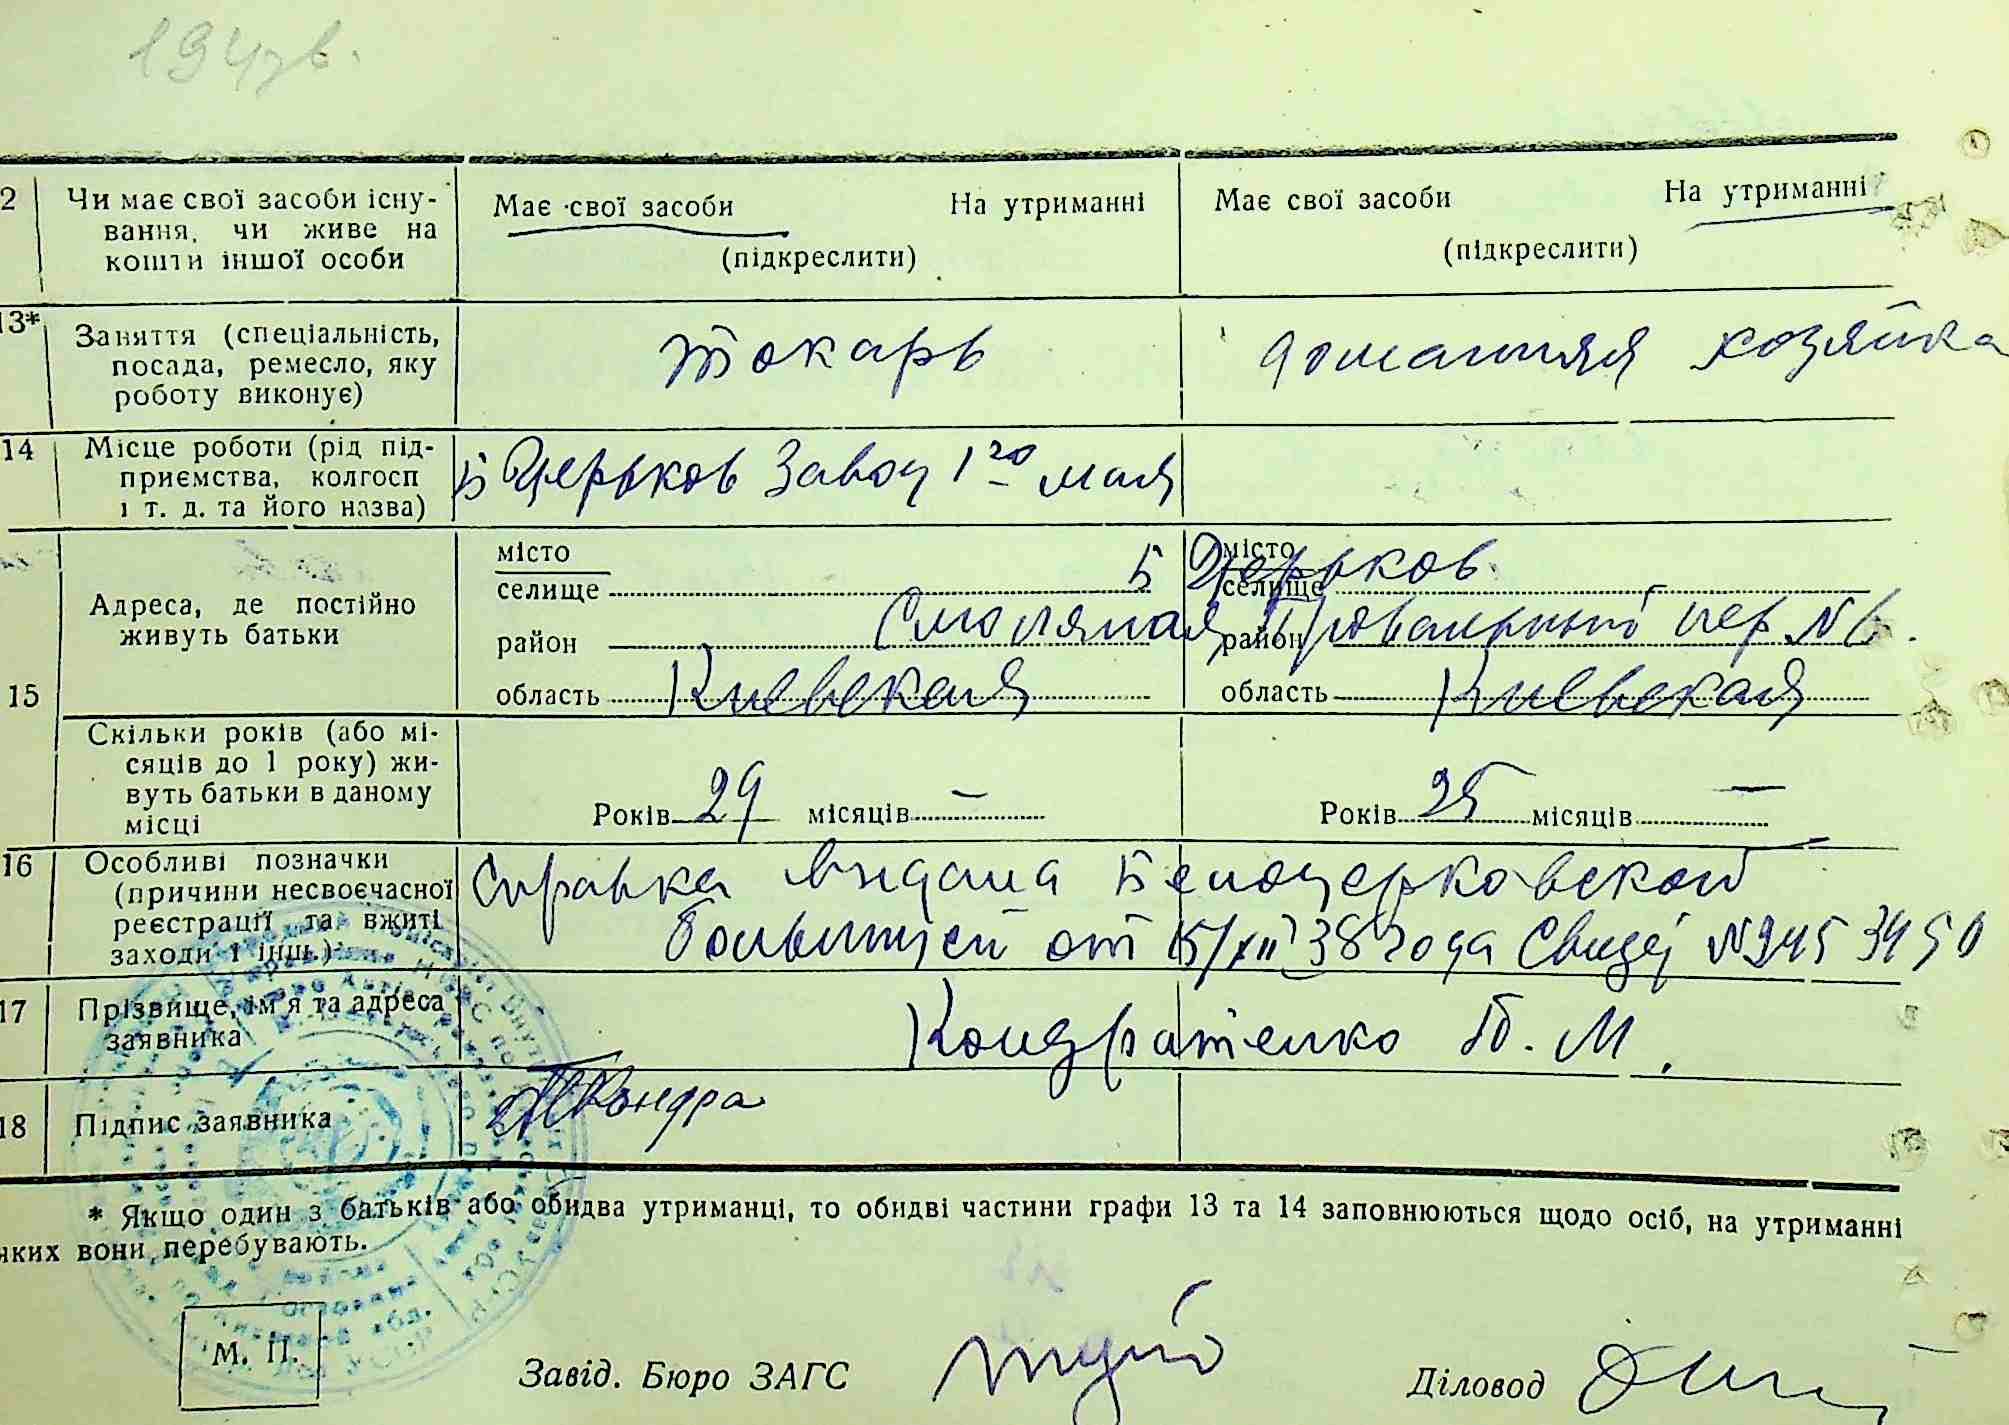 2 Чи має свої засоби існу-
вання, чи живе на
кошти іншої особи
Має свої засоби На утриманні
(підкреслити)
Має свої засоби На утриманні
(підкреслити)
13* Заняття (спеціальність,
посада, ремесло, яку
роботу виконує)
токарь
домашняя хозяйка
14 Місце роботи (рід під-
приємства, колгосп
і т. д. та його назва)
Б Церьков завод 1го мая
15 Адреса, де постійно
живуть батьки
місто
селище
район
область Киевская
місто
селище
район
область Киевская
Б Церьков
пер. №6.
Скільки років (або мі-
сяців до 1 року) жи-
вуть батьки в даному
місці
Років 29 місяців —
Років 25 місяців —
16 Особливі позначки
(причини несвоєчасної
реєстрації та вжиті
заходи і інш.)
Справка выдана Белоцерковской
больницей от 15/XII 38 года Свидет №245 3450
17 Прізвище, ім'я та адреса
заявника
Кондратенко М.
18 Підпис заявника
Кондра
* Якщо один з батьків або обидва утриманці, то обидві частини графи 13 та 14 заповнюються щодо осіб, на утриманні
яких вони перебувають.
М. П.
Завід. Бюро ЗАГС
Діловод